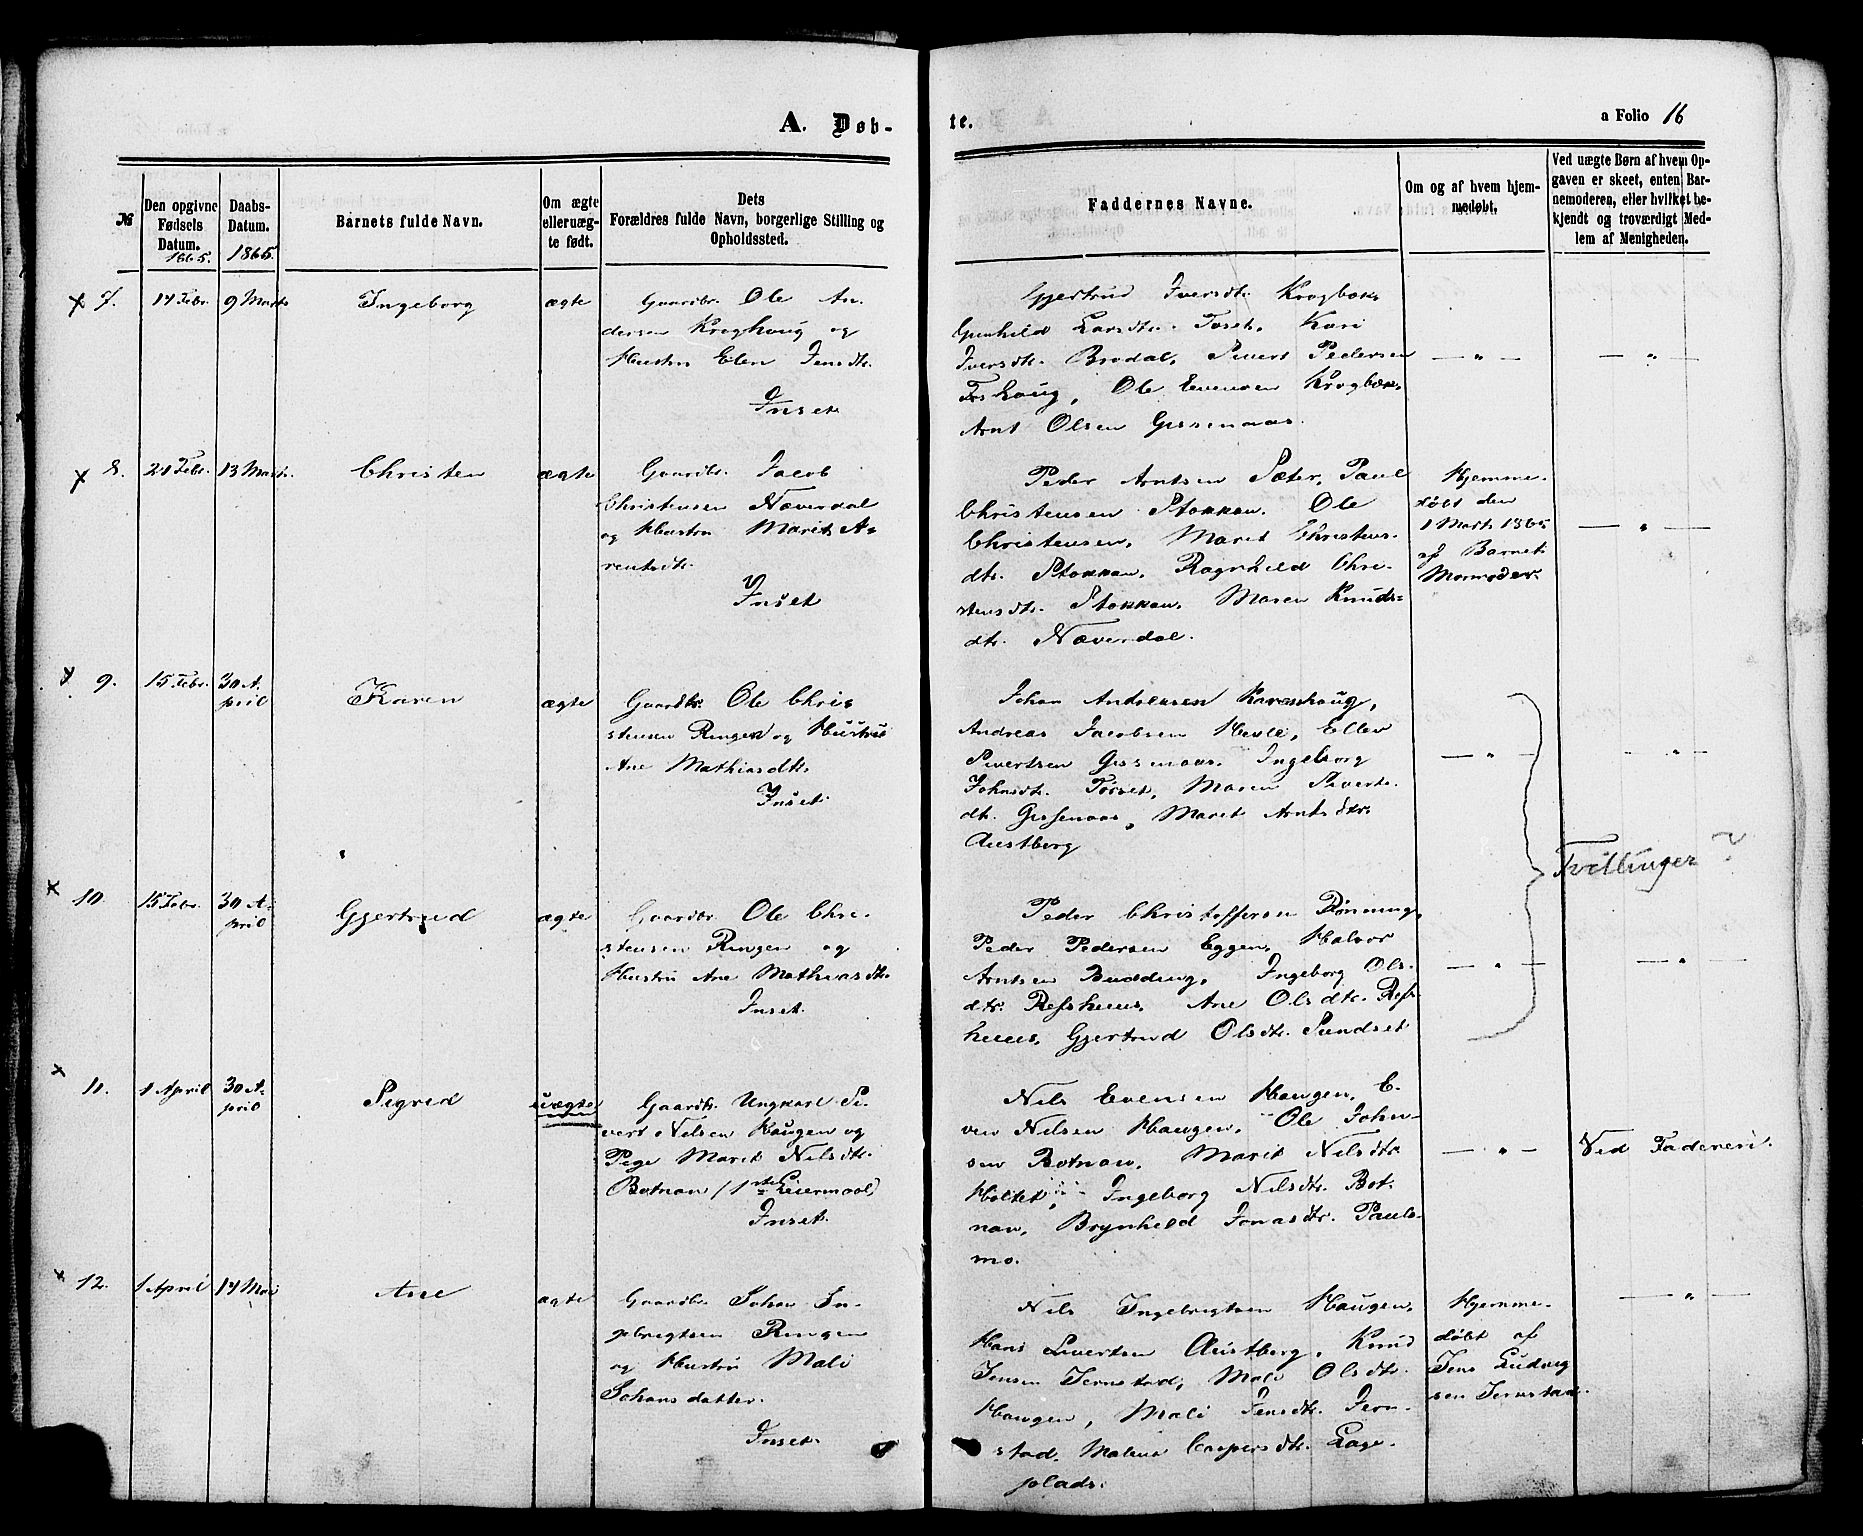 A. Døb-
te.
a Folio 16
№
Den opgivne Fødsels Datum. 1865.
Daabs-Datum. 1865.
Barnets fulde Navn.
Om ægte eller uæg-te født.
Dets Forældres fulde Navn, borgerlige Stilling og Opholdssted.
Faddernes Navne.
Om og af hvem hjem-medøbt.
Ved uægte Børn af hvem Op-gaven er skeet, enten Bar-nemoderen, eller hvilket be-kjendt og troværdigt Med-lem af Menigheden.
7. 14 Febr. 9 Marts Ingeborg ægte
Gaardbr. Ole An-
dersen Kroghaug og
Hustru Elen Jensdtr.
Inset.
Gjertrud Iversdtr. Krogbæk,
Gunhild Larsdtr. Toset, Kari
Iversdtr. Brodal, Sivert Pedersen
Foshaug, Ole Evensen Krogbæk,
Arnt Olsen Gissenaas.
— " —
— " —
8. 21 Febr. 13 Marts. Christen ægte
Gaardbr. Jacob
Christensen Næverdal
og Hustru Marit A-
rentsdtr.
Inset
Peder Arntsen Sæter, Paul
Christensen Stokkan, Ole
Christensen, Maret Christens-
dtr. Stokkan, Ragnhild Chri-
stensdtr. Stokkan, Maren Knuds-
dtr. Næverdal.
Hjemme-
døbt den
1 Marts 1865
af Barnets
Mormoder.
— " —
9. 15 Febr. 30 A-
pril
Karen ægte
Gaardbr. Ole Chri-
stensen Ringen og Hustru
Ane Mathiasdtr.
Inset.
Johan Andersen Karenhaug,
Andreas Jacobsen Hevle, Ellev
Sivertsen Gissenaas, Ingeborg
Johnsdtr. Torset, Maren Siverts-
dtr. Gissenaas, Marit Arntsdtr.
Austberg
— " —
— " —
Tvillinger?
10. 15 Febr. 30 A-
pril
Gjertrud ægte
Gaardbr. Ole Chri-
stensen Ringen og
Hustru Ane Mathiasdtr.
Inset.
Peder Christoffersen Rønning,
Peder Pedersen Eggen, Halvor
Arntsen Budding, Ingeborg Ols-
dtr. Refshuus, Ane Olsdtr. Refs-
huus, Gjertrud Olsdtr. Sundset
— " —
— " —
11. 1 April 30 A-
pril
Sigrid uægte
Gaardbr. Ungkarl Si-
vert Nilsen Haugen og
Pige Marit Nilsdtr.
Botnan (1ste Leiermaal)
Inset.
Nils Evensen Haugen, E-
ven Nilsen Haugen, Ole John-
sen Botnan, Marit Nilsdtr
Holtet, Ingeborg Nilsdtr. Bot-
nan, Brynhild Jonasdtr. Pauls-
mo.
— " —
Ved Faderen.
12. 1 April 14 Mai Ane ægte
Gaardbr. Johan In-
gebrigtsen Ringen
og Hustru Mali
Johansdatter.
Inset.
Nils Ingebrigtsen Haugen,
Hans Sivertsen Austberg, Knud
Jensen Jernstad, Mali Olsdtr.
Haugen, Mali Jensdtr. Jern-
stad, Malena Caspersdtr. Lage-
plads.
Hjemme-
døbt af
Jens Ludvig-
sen Jernstad.
— " —